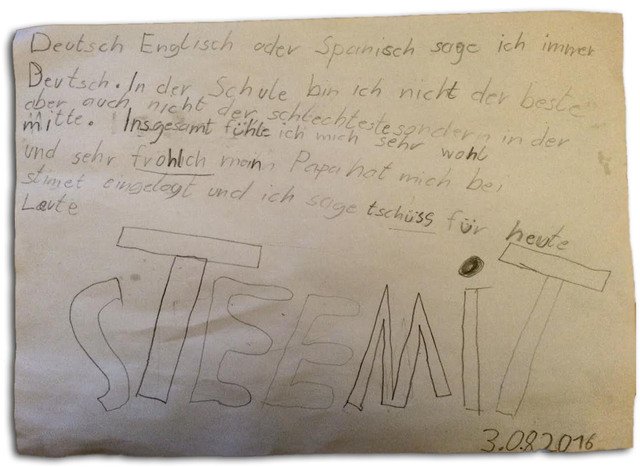 Deutsch Englisch oder Spanisch sage ich immer
Deutsch. In der Schule bin ich nicht der beste
aber auch nicht der schlechteste sondern in der
mitte. Insgesamt fühle ich mich sehr wohl
und sehr frohlich mann Papa hat mich bei
stimet eingelogt und ich sage tschüss für heute
Leute
STEEMiT
3.08.2016